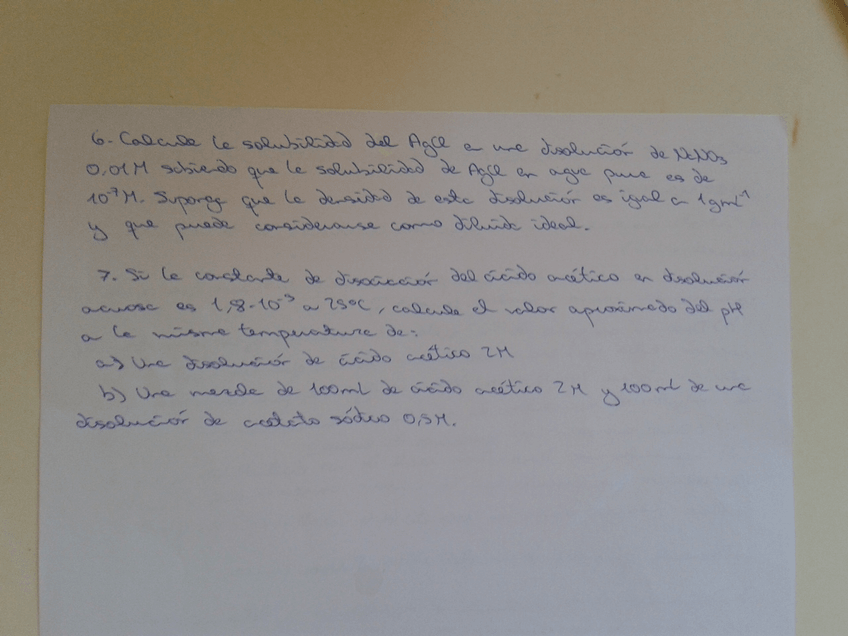 6.- Calcule la solubilidad del AgCl en una disolución de NaNO3
0,01M sabiendo que la solubilidad de AgCl en agua pura es de
M. Suponga que la densidad de esta disolución es igual a 1gml⁻¹
y que puede considerarse como diluida ideal.
7.- Si la constante de disociación del ácido acético en disolución
acuosa es 1,8·10⁻⁵ a 25ºC, calcule el valor aproximado del pH
a la misma temperatura de:
a) Una disolución de ácido acético 2M
b) Una mezcla de 100ml de ácido acético 2M y 100ml de una
disolución de acetato sódico 0,5M.